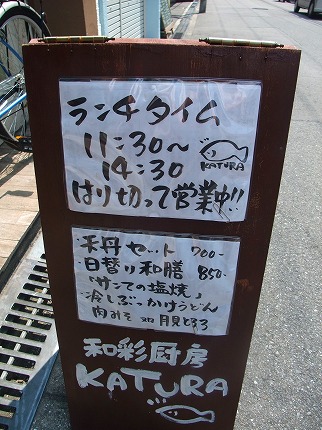 ランチタイム
11:30〜
14:30
KATURA
はり切って営業中!!
・禾丹セット 700-
・日替り和膳 850-
「サンマの塩焼」
・冷しぶっかけうどん
肉みそ or 月見とろろ
和彩厨房
KATURA